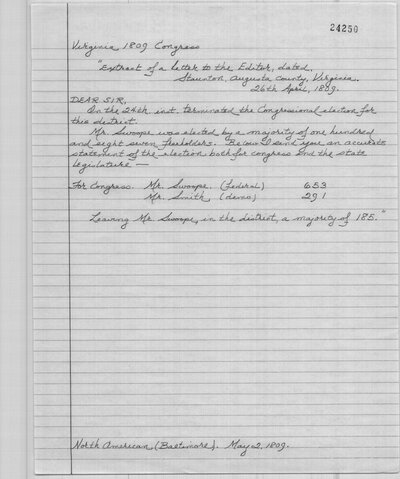 24250
Virginia 1809 Congress
"Extract of a letter to the Editor, dated,
Staunton, Augusta County, Virginia.
26th April, 1809.
DEAR SIR,
On the 24th inst. terminated the Congressional election for
this district.
Mr. Swoope was elected by a majority of one hundred
and eight seven freeholders. Below I send you an accurate
statement of the election both for congress and the state
legislature —
For Congress. Mr. Swoope, (Federal) 653
Mr. Smith, (demo) 291
Leaving Mr. Swoope, in the district, a majority of 185."
North American (Baltimore). May 2, 1809.